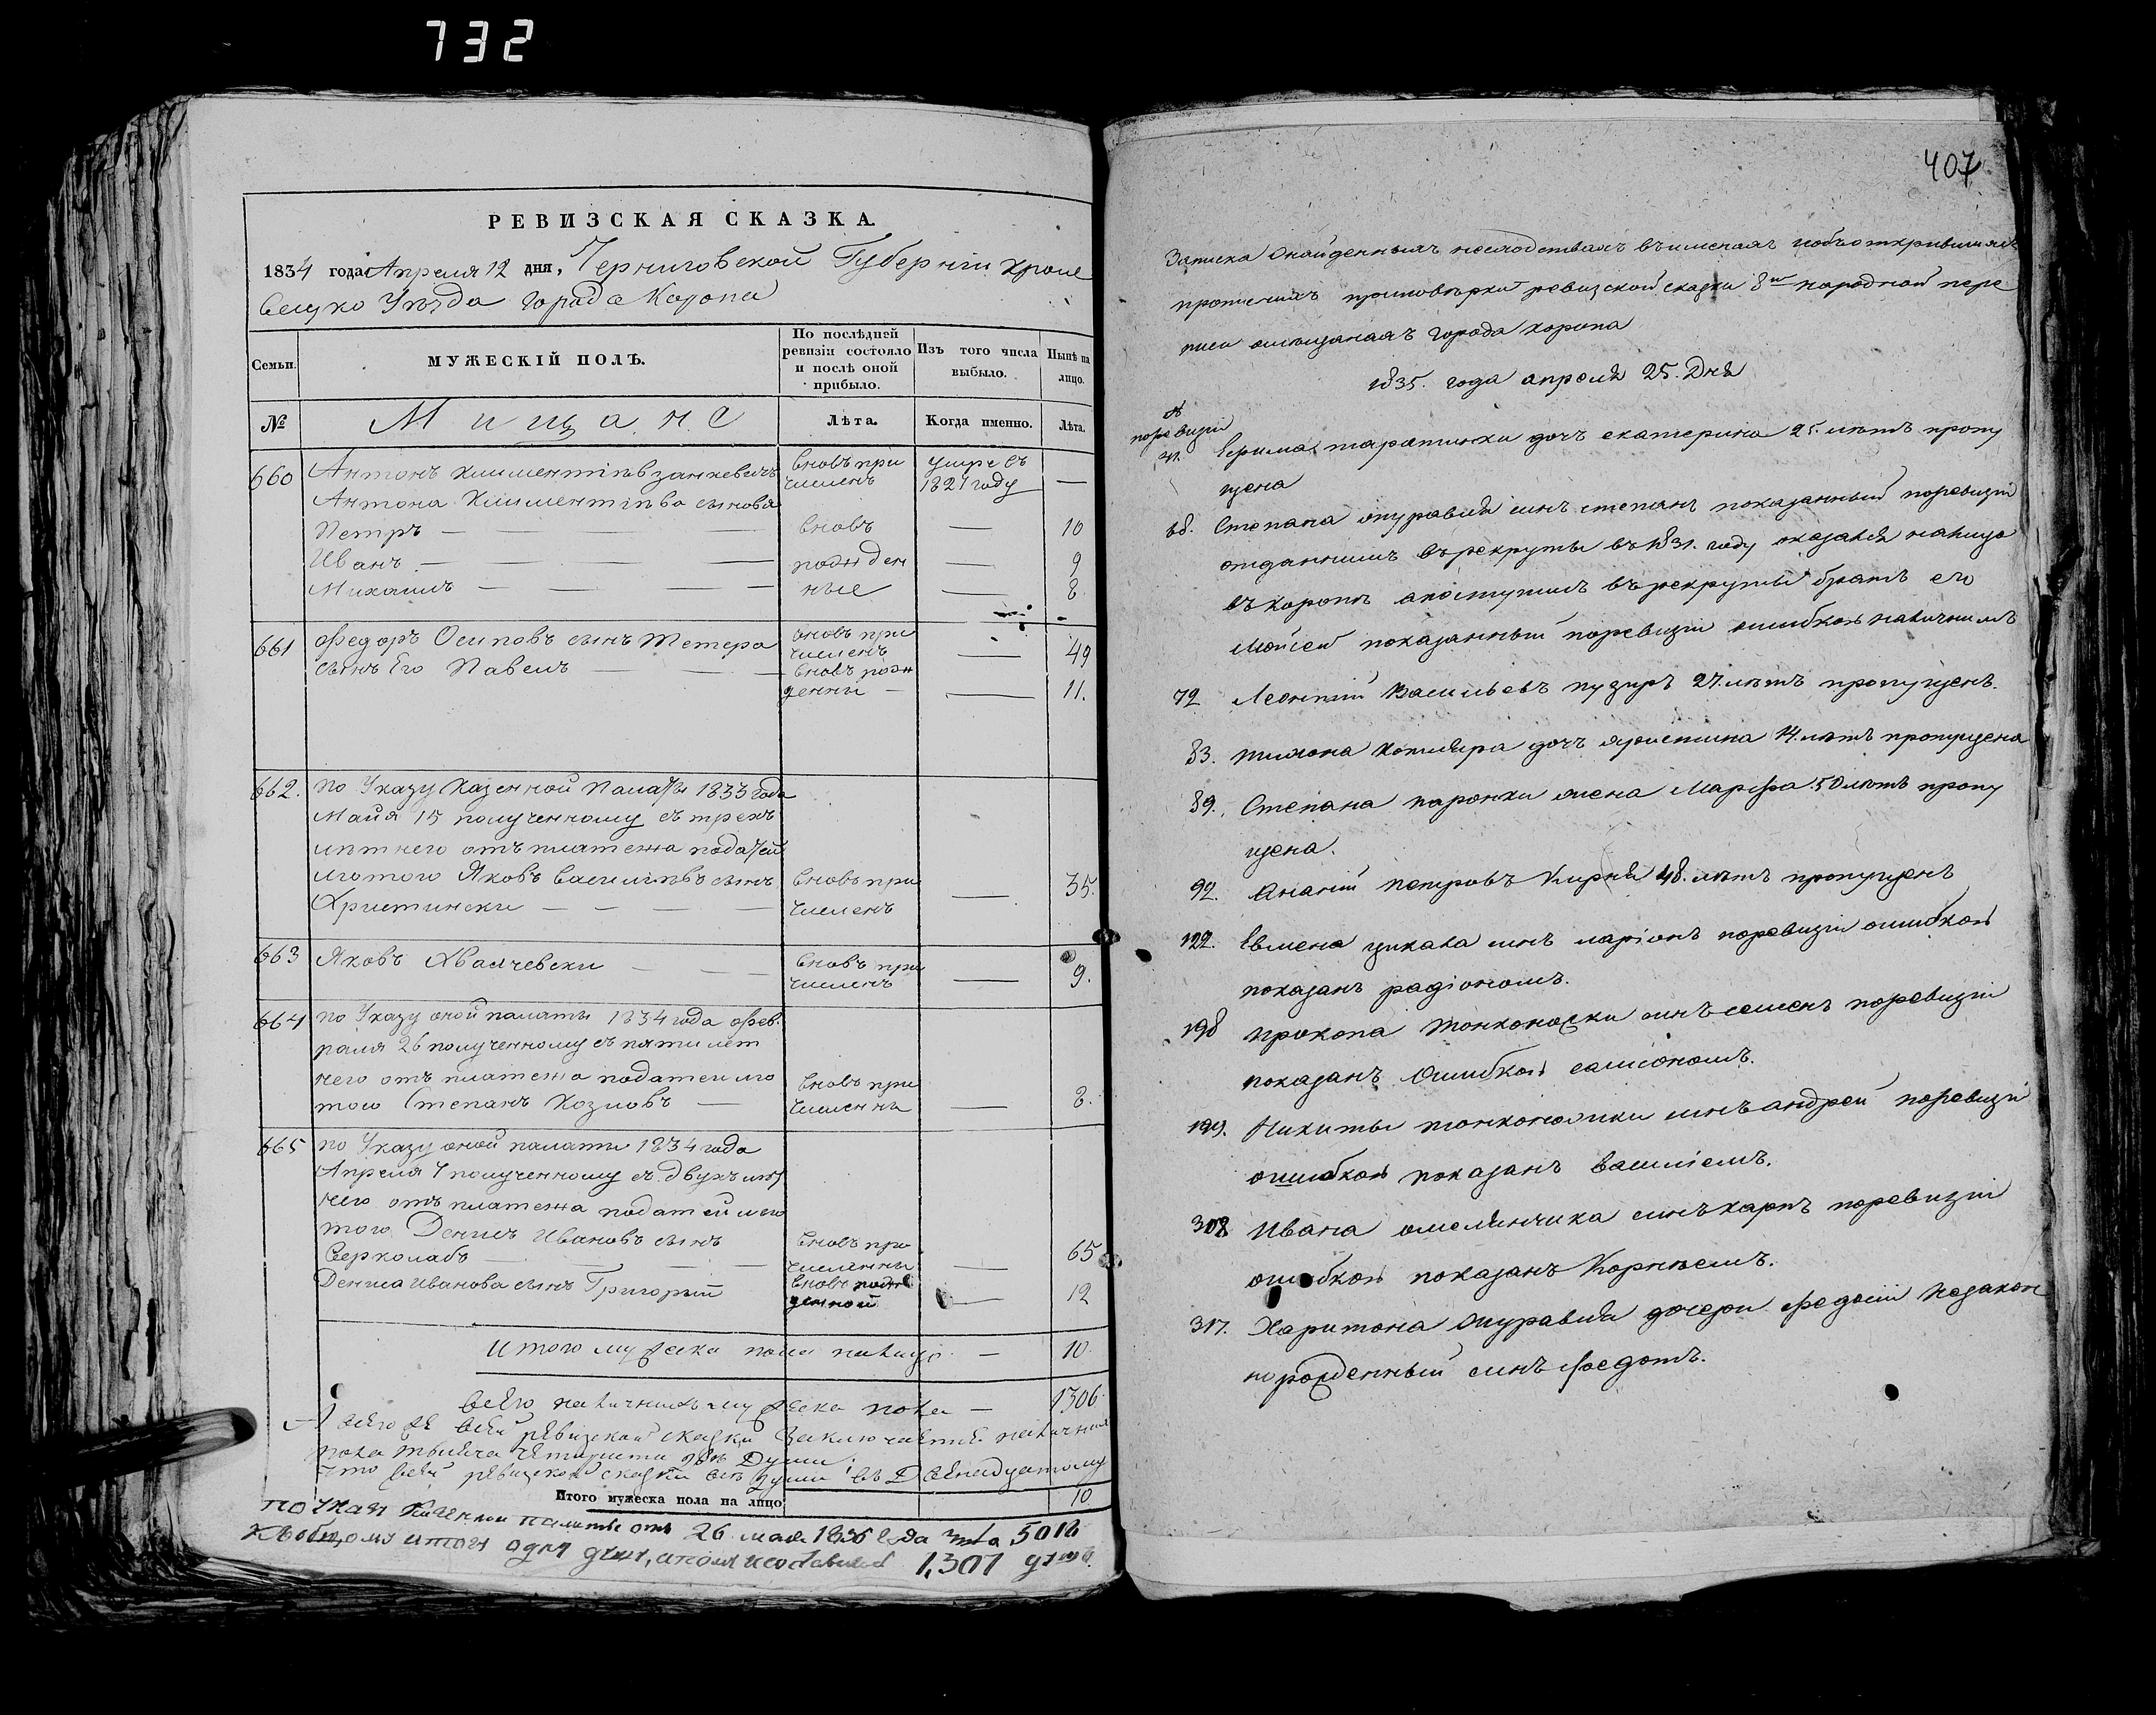 732
РЕВИЗСКАЯ СКАЗКА.
1834 года Апреля 12 дня, Черниговской Губерніи Кроле
вецко Уезда города Коропа
Семьи.
МУЖЕСКІЙ ПОЛЪ.
По послѣдней ревизіи состояло и послѣ оной прибыло.
Изъ того числа выбыло.
Нынѣ на лицо.
№
Мищане
Лѣта.
Когда именно.
Лѣта.
660 Антонъ Климентіевъ вновь при умре въ
численъ 1827 году —
Антона Климентіева сыновья
Петръ — вновь — 10
Иванъ — рожден — 9
Михаилъ — ные — 8
661 Федоръ Осиповъ сынъ Тетера вновь при
численъ — 49
сынъ Его Павелъ — вновь рож
денны — 11.
662. по Указу Казенной Палаты 1833 года
Майя 15 полученному съ трехъ
летнего отъ платежа податей
лготою Яковъ Василіевъ сынъ вновь при — 35.
Христински — численъ
663 Яковъ Хвалчевски — вновь при
численъ — 9.
664 по Указу оной палаты 1834 года Фев.
раля 26 полученному съ пяти лет
него отъ платежа податеи лго
тою Степанъ Козловъ — вновь при
численны — 8.
665 по Указу оной палаты 1834 года
Апреля 7 полученному съ двухъ лет
него отъ платежа податей лго
тою Денисъ Ивановъ сынъ вновь при
Верколабъ — численны — 65
Дениса Иванова сынъ Григорий вновь рож
денной — 12
Итого мужеска пола налицо — 10.
Всего наличныхъ мужеска пола — 1306
А всего въ всей ревизской сказки заключается наличныхъ
пола тысяча четыриста Души
что всей ревизской сказки въ Двенадцатому
Итого мужеска пола на лицо 10
по указу Казенной палаты отъ 26 мая 1836 года за 5012
къ общому итогу одну душу, и составилось 1,307 душъ.
407
Записка о найденныхъ несходствахъ въ имечахъ и объ открившихся
пропускахъ при поверки ревизской сказки 8й народной пере
писи о мещанахъ города Коропа
1835. года апреля 25. Дня
№
по ревизіи
31. тарасинки дочъ екатерина 25. летъ пропу
щена
68. Степана журавля синъ степанъ показанный поревизіи
отданнимъ въ рекруты въ 1831. году оказался налицо
въ Коропе а поступилъ въ рекруты братъ его
Мойсей показанный поревизіи ошибкою наличнимъ
72 Леонтій Васильевъ пузиръ 27. летъ пропущенъ.
83. Тимона Котляра дочъ христина 14. летъ пропущена
89. Степана паронки жена Марфа 50 летъ пропу
щена.
92. Ананій петровъ Кирня 48. летъ пропущенъ
122. Евмена цикала синъ ларіонъ поревизіи ошибкою
показанъ радіономъ.
198 прокопа Тонконожки синъ семенъ поревизіи
показанъ ошибкою самсономъ.
199. Никиты тонконожки синъ андрей поревизіи
ошибкою показанъ василіемъ.
308 Ивана омелянчика синъ карпъ поревизіи
ошибкою показанъ Корнеемъ.
317. Харитона журавля дочери Федосіи незакон
норожденный синъ Федотъ.